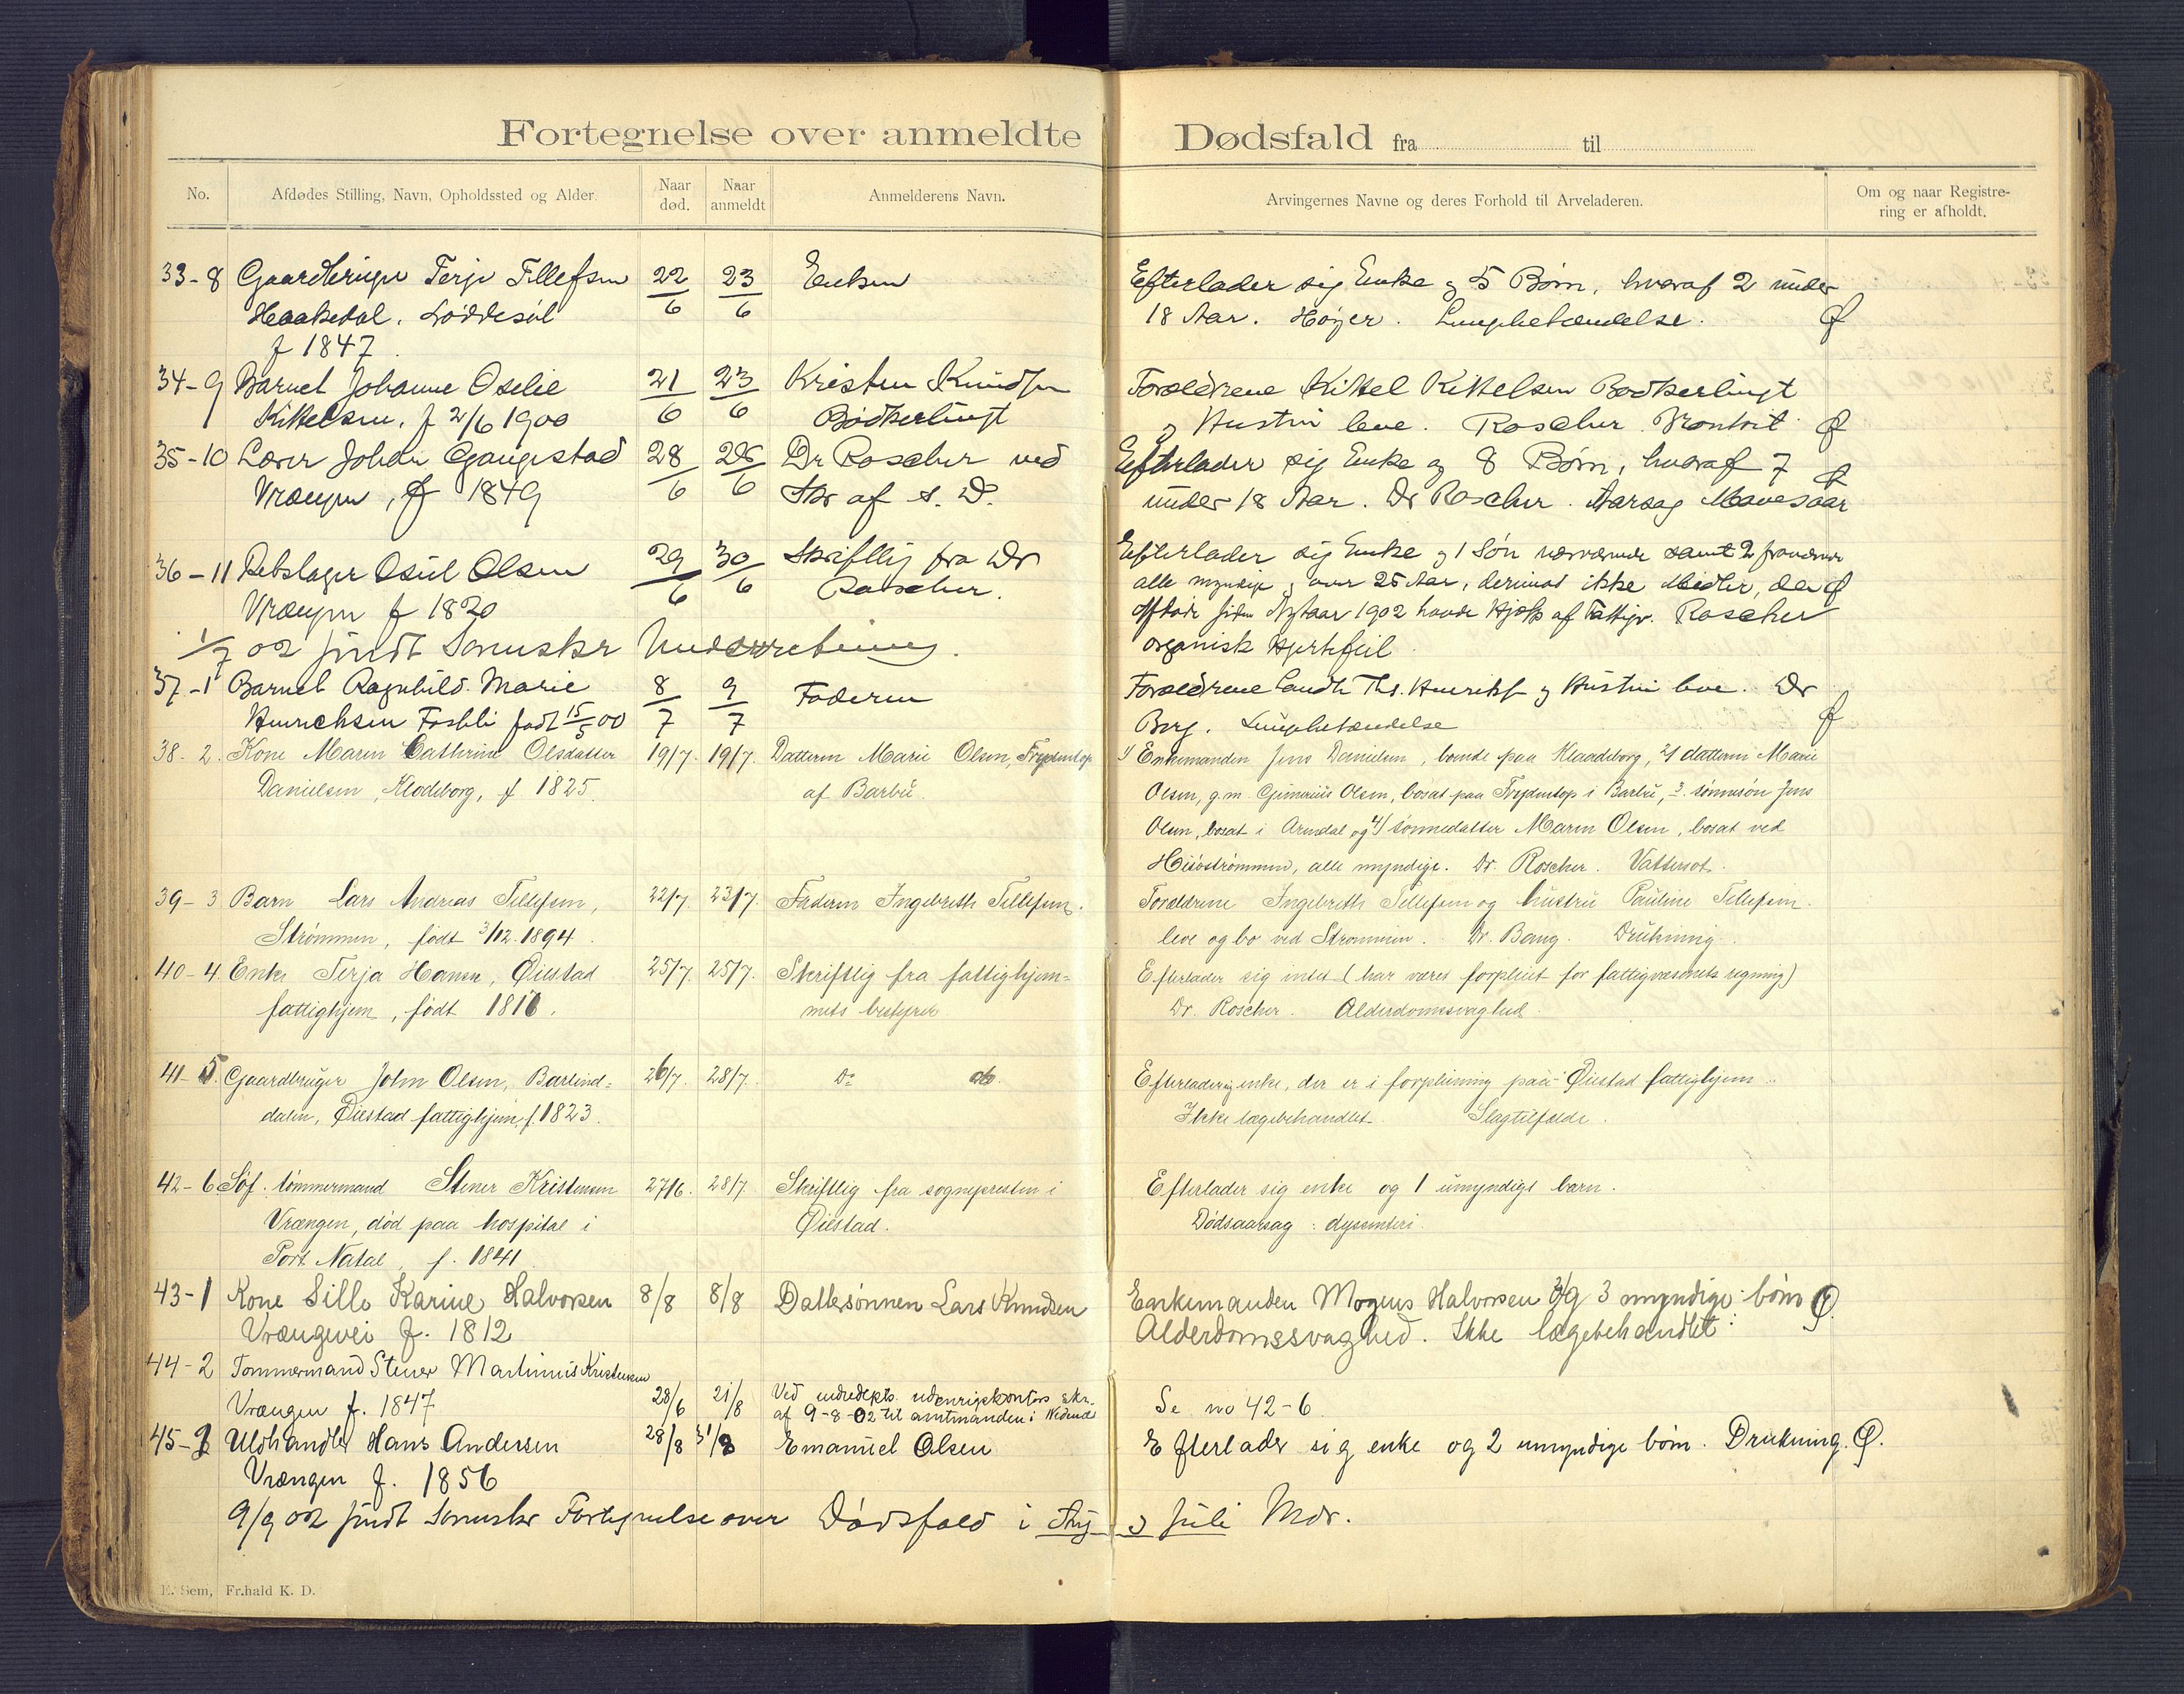 Fortegnelse over anmeldte Dødsfald fra til
No. Afdødes Stilling, Navn, Opholdssted og Alder. Naar død. Naar anmeldt Anmelderens Navn. Arvingernes Navne og deres Forhold til Arveladeren. Om og naar Registrering er afholdt.
33-8 Gaardbruger Terje Tellefsen 22/6 23/6 Enken Efterlader sig Enke og 5 Børn, hvoraf 2 under
Haakedal. Løddesøl 18 Aar. Høyer. Lungebetændelse.
f 1847
34-9 Barnet Johanne Oselie 21/6 23/6 Kristen Knudsen Forældrene Kittel Kittelsen Bodkerlingt
Kittelsen, f 2/6 1900 Bødkerlingt og Hustru leve. Roscher
35-10 Lærer Johan Gaugestad 28/6 28/6 Dr Roscher ved Efterlader sig Enke og 8 Børn, hvoraf 7
Vrængen, f 1849 Skr af s. D. under 18 Aar. Dr Roscher. Aarsag Mavesaar
36-11 Rebslager Osuld Olsen 29/6 30/6 Skriftlig fra Dr Efterlader sig Enke og 1 Søn nærværende samt 2 fraværende
Vrængen f 1820 Roscher. alle myndige og over 25 Aar, derimod ikke Midler, da
Afdøde siden Nytaar 1902 havde Hjælp af Fattigv. Roscher
organisk Hjertefeil
1/7 02 sendt Sorenskr Underretning.
37-1 Barnet Ragnhild Marie 8/7 9/7 Faderen Forældrene Landh. Ths. Henriks og Hustru leve. Dr
Henrichsen født 15/5 00 Berg. Lungebetændelse
38-2. Kone Maren Cathrine Olsdatter 19/7. 19/7. Datteren Marie Olsen, Frydentop 1) Enkemanden Jens Danielsen, boende paa Klaadeborg, 2) datteren Marie
Danielsen, Klodeborg, f 1825. af Barbu. Olsen, g.m. Gunerius Olsen, bosat paa Frydentop i Barbu, 3. sønnesøn Jens
Olsen, bosat i Arendal og 4) sønnedatter Maren Olsen, bosat ved
Hisøstrømmen, alle myndige. Dr. Roscher. Vattersot.
39-3 Barn Lars Andreas Tellefsen, 22/7. 23/7. Faderen Ingebreth Tellefsen. Forældrene Ingebreth Tellefsen og hustru Pauline Tellefsen.
Strømmen, født 3/12.1894. leve og bo ved Strømmen. Dr. Bang. Drukning.
40-4. Enke Terja Hansen, Øiestad 25/7. 25/7. Skriftlig fra fattighjem- Efterlader sig intet (har været forpleiet for fattigvæsenets regning)
fattighjem, født 1816. mets bestyrer Dr. Roscher. Alderdomssvaghed.
41-5. Gaardbruger John Olsen, Barlind- 26/7. 28/7. Do do. Efterlader sig enke, der er i forpleining paa Øiestad fattighjem.
dalen, Øiestad fattighjem, f. 1823. Ikke lægebehandlet. Slagtilfælde.
42-6 Søf. tømmermand Stener Kristensen 27/6. 28/7 Skriftlig fra sognepresten i Efterlader sig enke og 1 umyndigt barn.
Vrængen, død paa hospital i Øiestad. Dødsaarsag: dysenteri.
Port Natal, f. 1841.
43-1 Kone Sille Karine Halvorsen 8/8 8/8 Dattersønnen Lars Knudsen Enkemanden Mogens Halvorsen og 3 myndige børn
Vrængevei f. 1812 Alderdomssvaghed. Ikke lægebehandlet.
44-2 Tømmermand Stener Martinius Kristensen
Vrængen f. 1847 28/6 21/8 Ved indredepts. udenrigskontors skr. Se no 42-6
af 9-8-02 til amtmanden i Nedenes
45-3 Uldhandler Hans Andersen 28/8 31/8 Emanuel Olsen Efterlader sig enke og 2 umyndige børn. Drukning.
Vrængen f. 1856
9/9 02 sendt Sorenskr Fortegnelse over Dødsfald i Aug og Juli Mdr.
E. Sem, Fr.hald K. D.